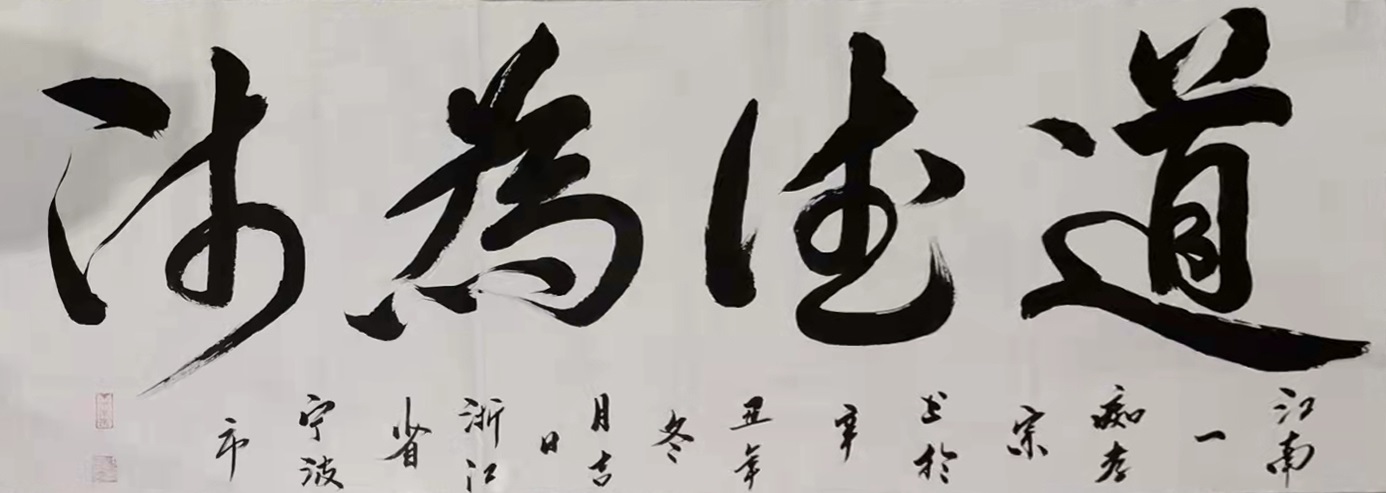 道德為师
江南一痴宗书於辛丑年冬月吉日浙江省宁波市